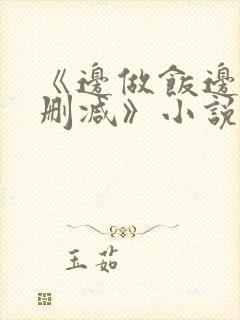 《邊做飯邊
刪減》小說
玉茹